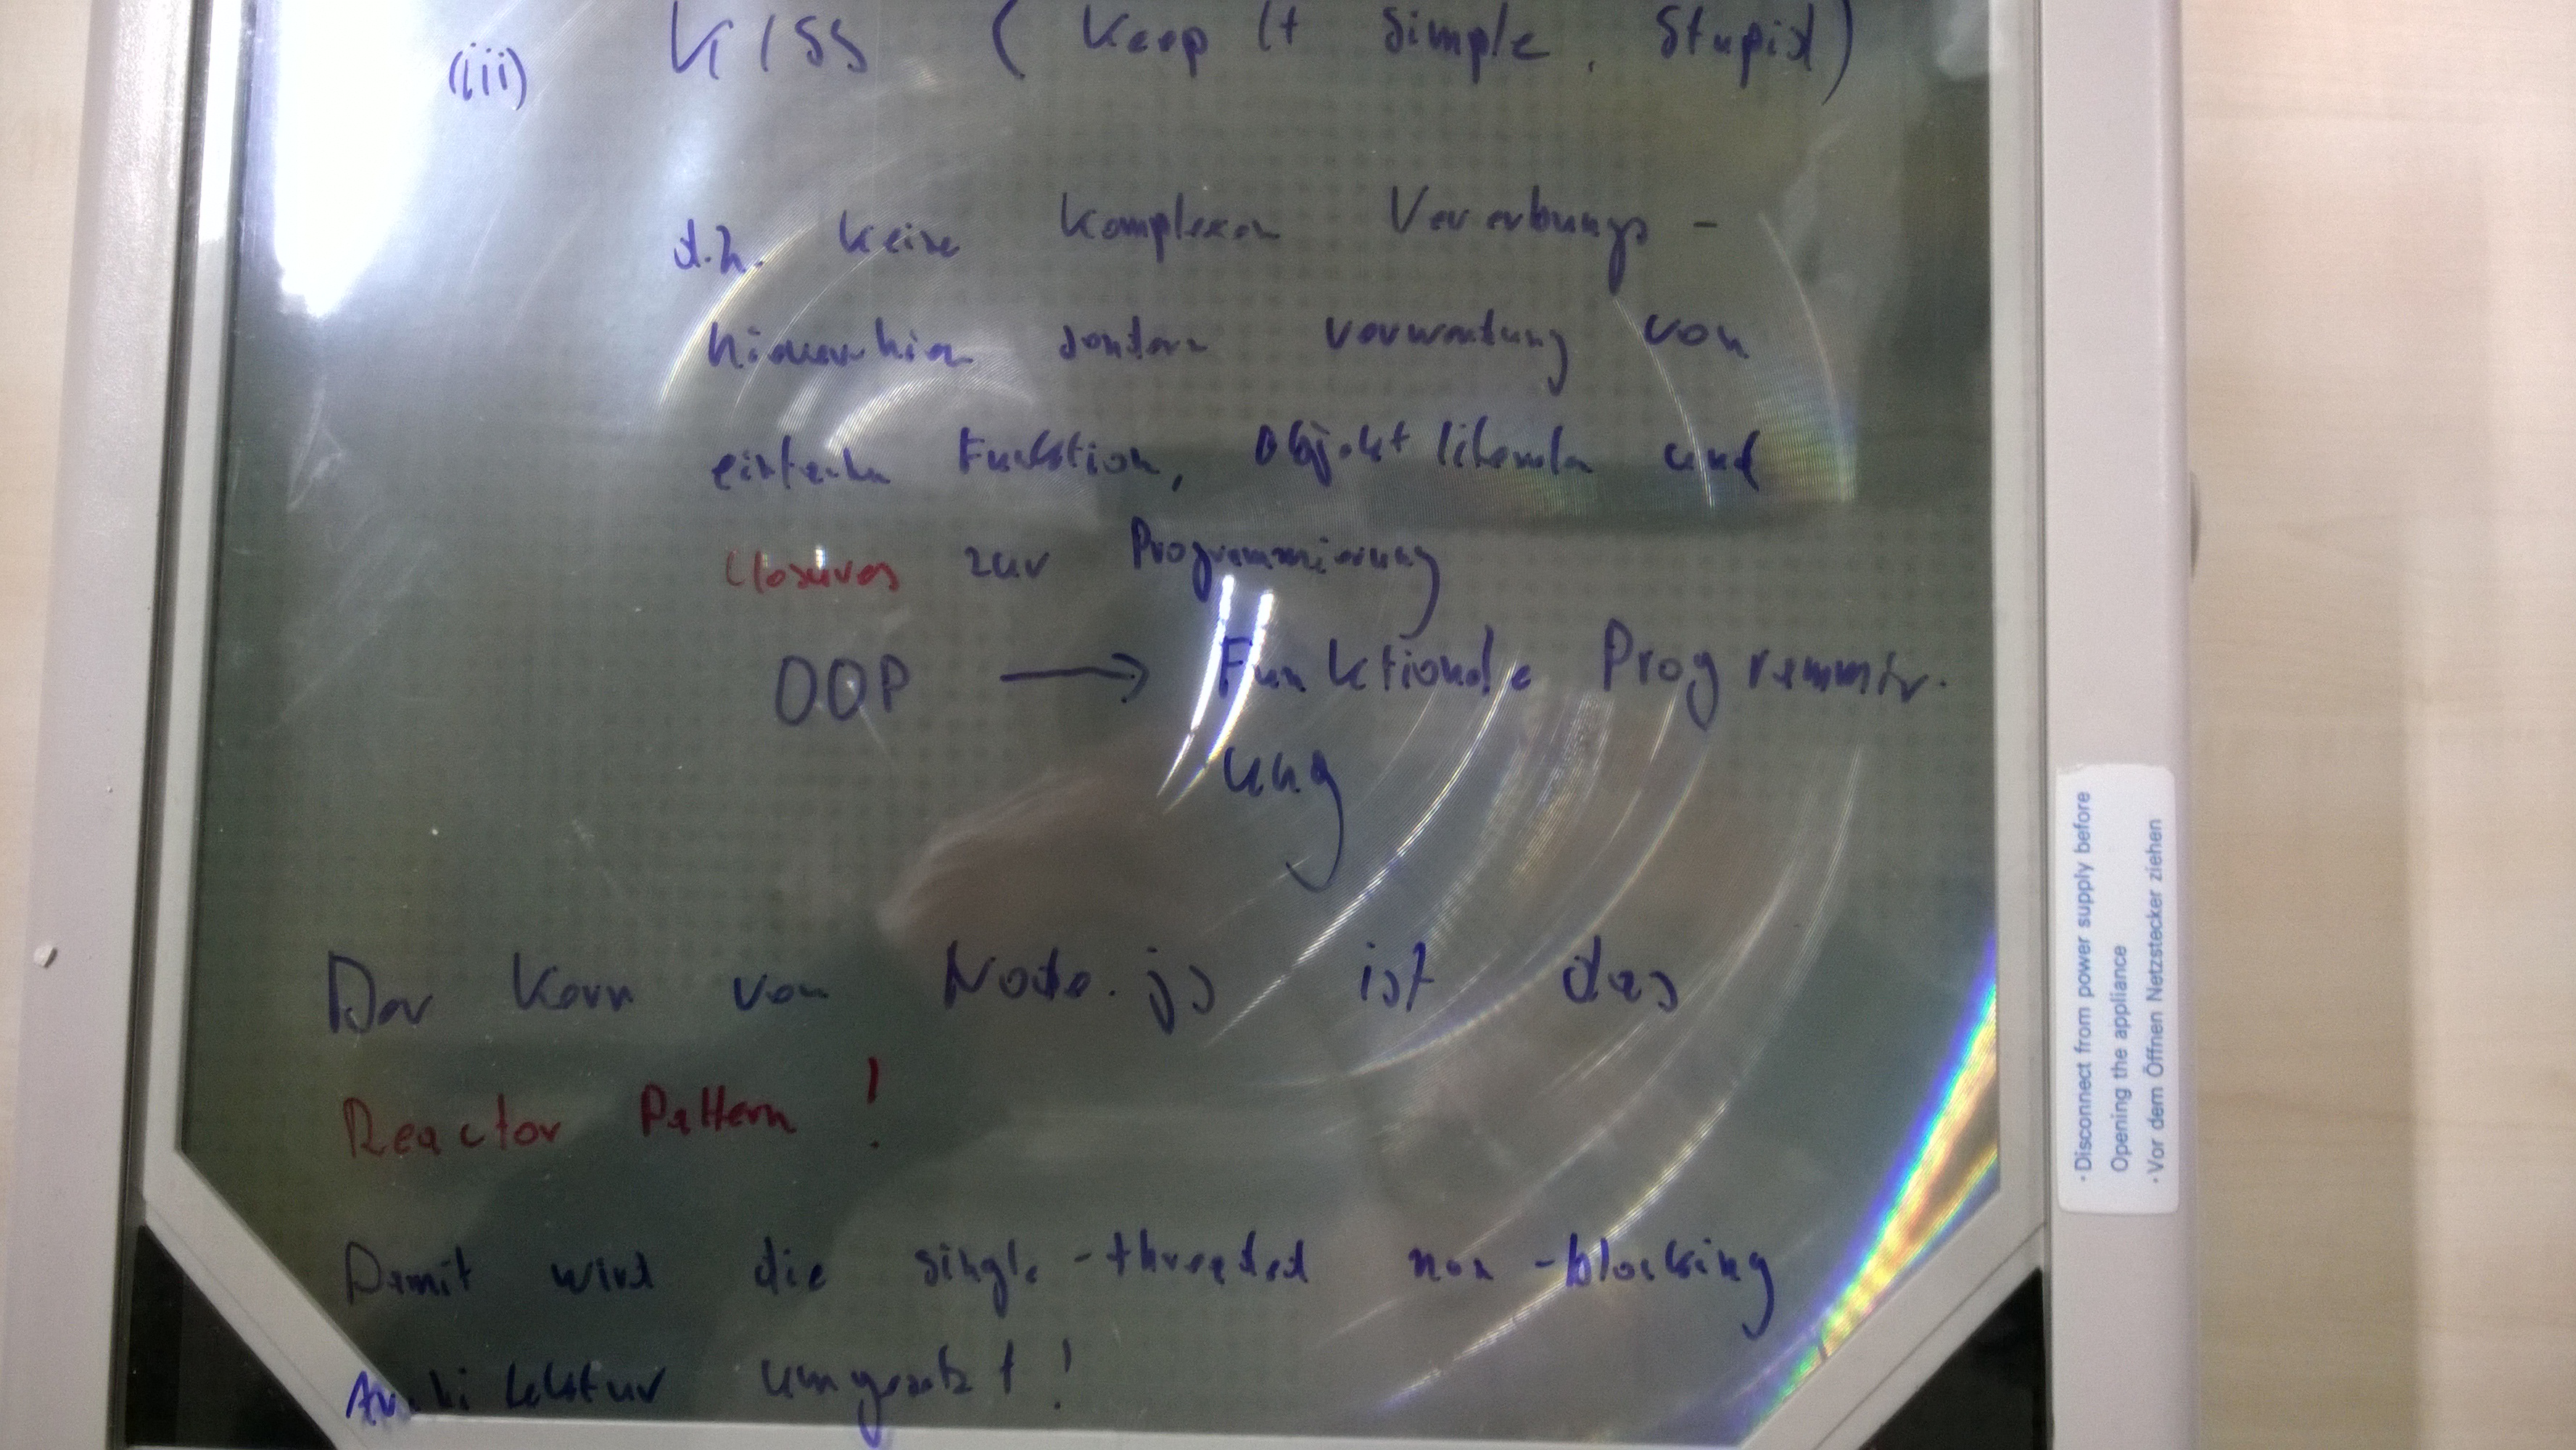 (iii) KISS (Keep It Simple, Stupid)
d.h. keine komplexen Vererbungs-
hierarchien sondern verwendung von
einfachen Funktion, Objektliteralen und
Closures zur Programmierung
OOP → Funktionale Programmier-
ung
Der Kern von Node.js ist das
Reactor Pattern!
Damit wird die single-threaded non-blocking
Architektur umgesetzt!
· Disconnect from power supply before
Opening the appliance
· Vor dem Öffnen Netzstecker ziehen